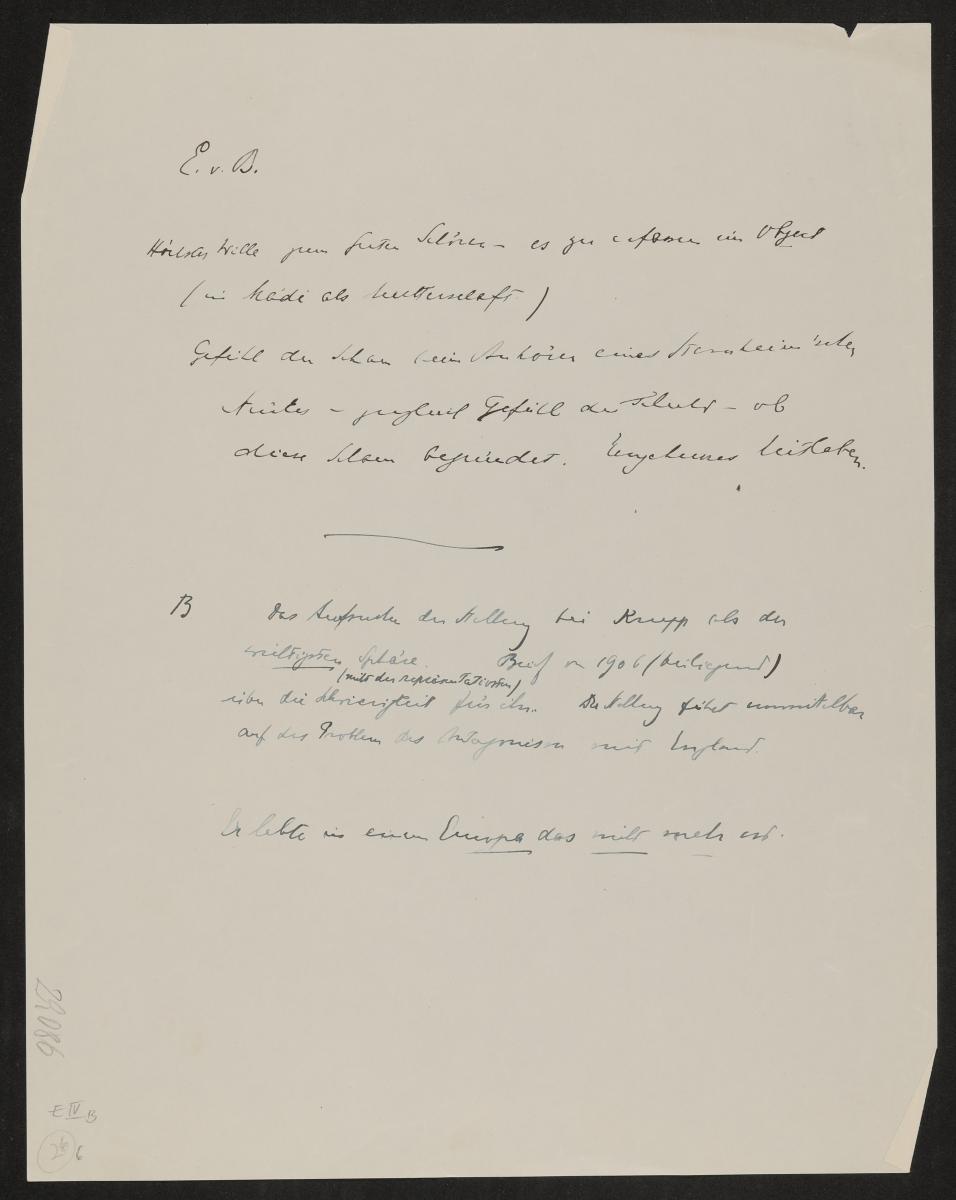 E. v. B.
Höchster Wille zum Guten Schönen – es zu erfassen im Object
(in Mädi als Mutterschaft)
Gefühl der Scham beim Anhören eines Sternheim'schen
Stückes – zugleich Gefühl der Schuld – ob
diese Scham begründet. Ungeheures Mitleben.
B Das Aufsuchen der Stellung bei Krupp als der
wichtigsten Sphäre. Brief von 1906 (beiliegend)
(nicht der repräsentativsten)
über die Schwierigkeit für ihn. Die Stellung führt unmittelbar
auf das Problem des Antagonismus mit England.
Er lebte in einem Europa das nicht mehr ist.
29086
E IV B
26 6